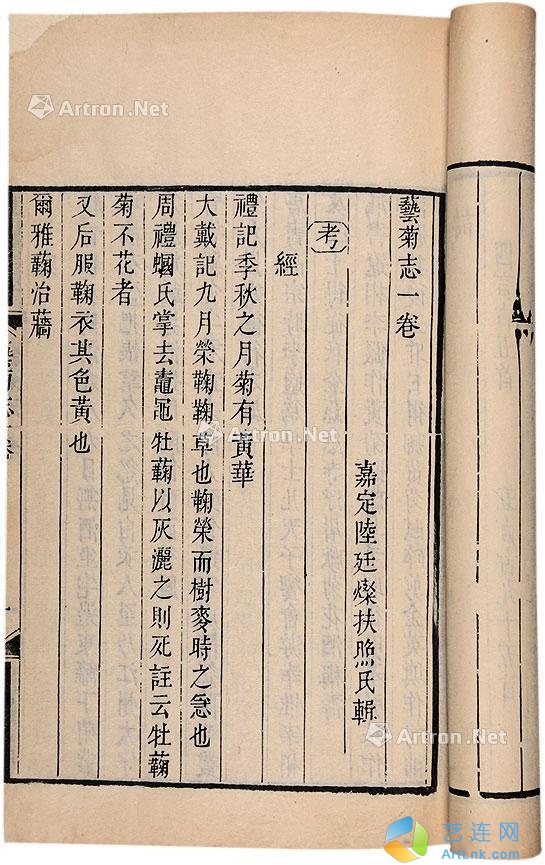 藝菊志一卷
嘉定陸廷燦扶照氏輯
考
經
禮記季秋之月菊有黃華
大戴記九月榮鞠鞠草也鞠榮而樹麥時之急也
周禮蟈氏掌去鼃黽牡蘜以灰灑之則死註云牡蘜
菊不花者
又后服鞠衣其色黃也
爾雅蘜治蘠
Artron.Net
Artron.Net
Artron.Net
Artron.Net
Artron.Net
Artron.Net
艺连网
ArtLnk.com